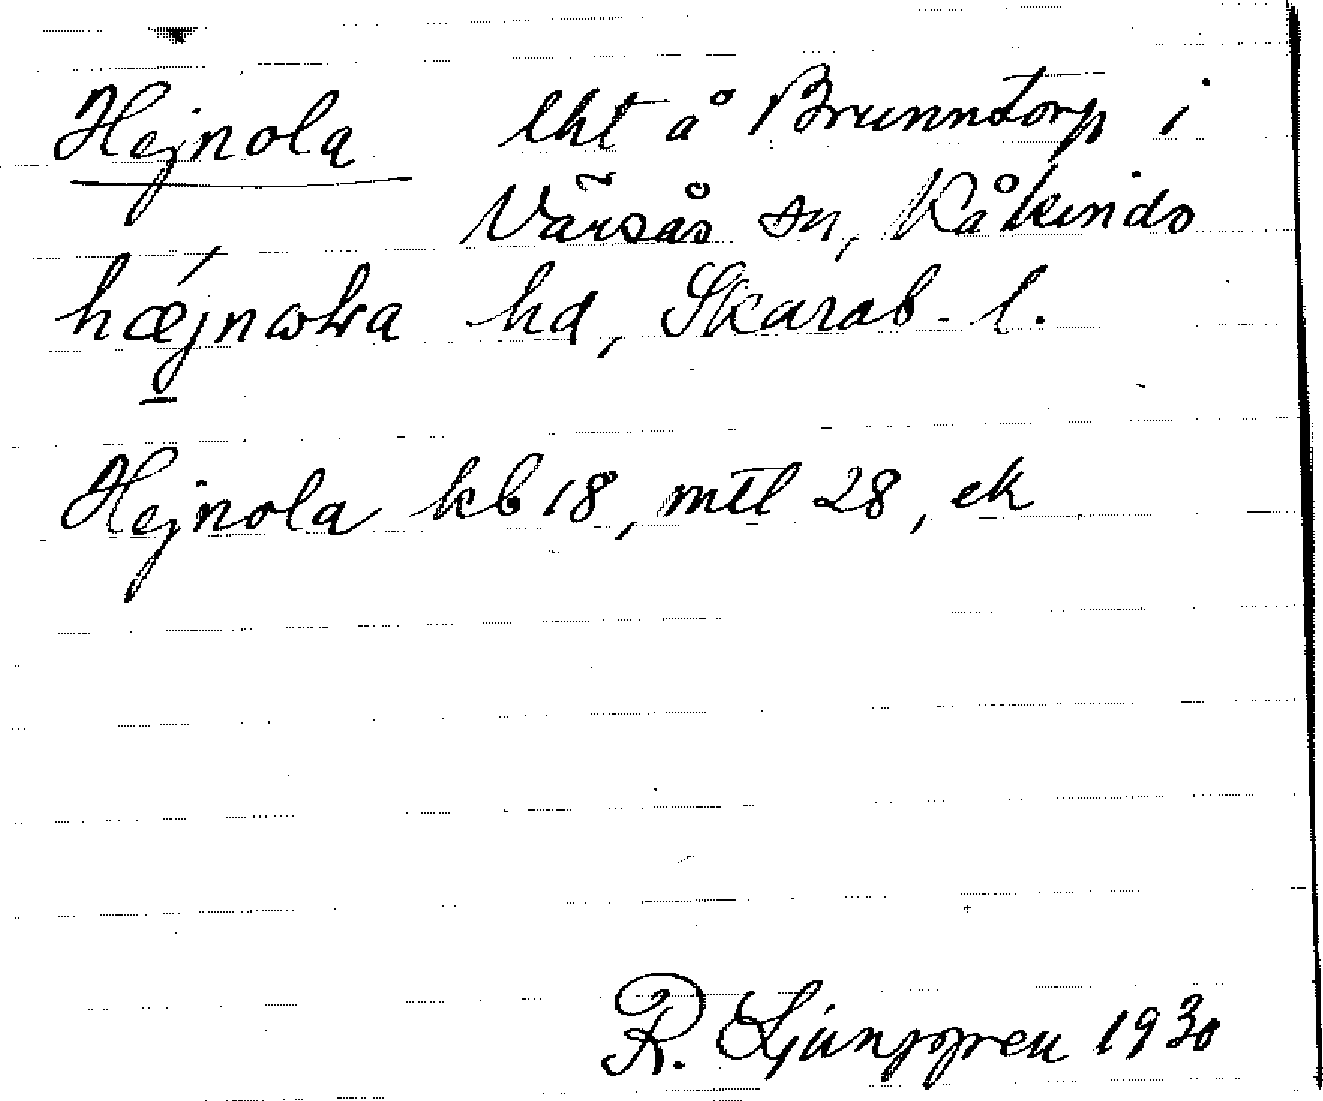 Hejnola lht å Brunnstorp i
Värsås sn, Kåkinds
hd, Skarab. l.
Hejnola kb 18, mtl 28, ek
R. Ljunggren 1930